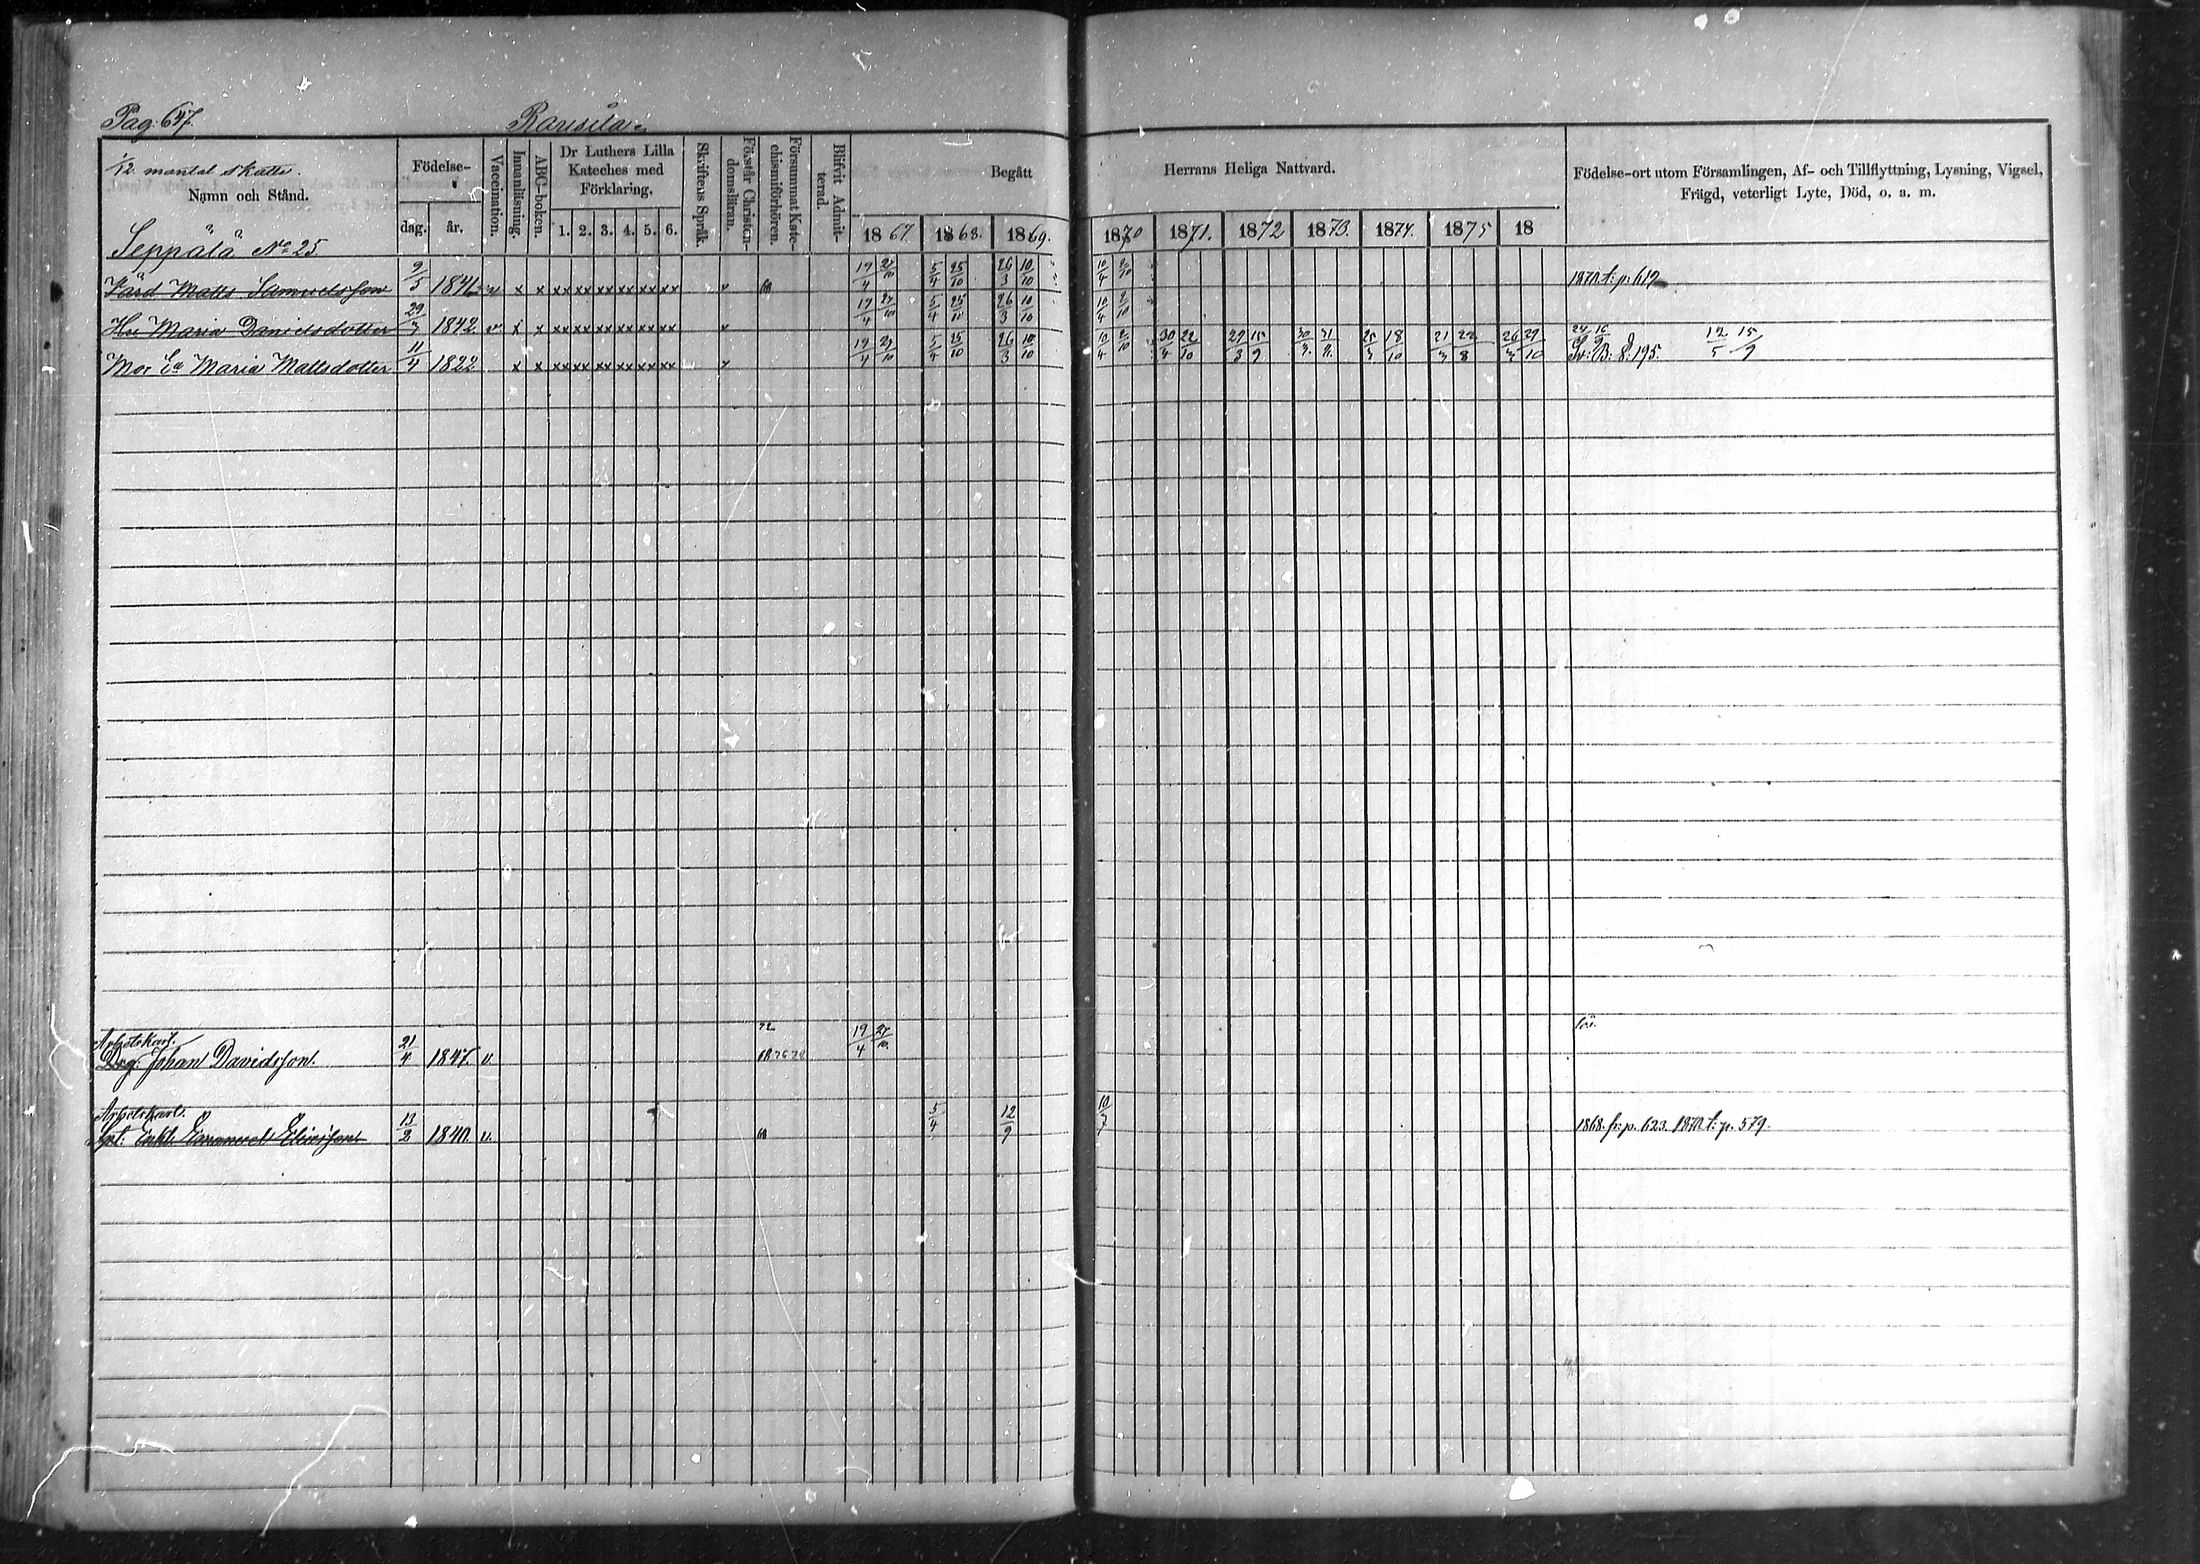 Pag. 647. Rousila.
1/12 mantal skatte.
Namn och Stånd.
Födelse-
dag. år.
Vaccination.
Innanläsning.
ABC-boken.
Dr Luthers Lilla
Kateches med
Förklaring.
1. 2. 3. 4. 5. 6.
Skriftens Språk.
Förstår Christen-
domsläran.
Försummat Kate-
chismiförhören.
Blifvit Admit-
terad.
Begått Herrans Heliga Nattvard.
1867 1868. 1869. 1870 1871. 1872 1873. 1874. 1875 18
Födelse-ort utom Församlingen, Af- och Tillflyttning, Lysning, Vigsel,
Frägd, veterligt Lyte, Död, o. a. m.
Seppälä No 25.
Matts Samuelsson 9/5 1846 v x x xx xx xx xx xx xx 19/4 27/10 5/4 25/10 26/3 10/10 10/4 2/10 1870. t. p. 619
Hu Maria Danielsdotter 29/3 1842 v x x xx xx xx xx xx xx 19/4 27/10 5/4 25/10 26/3 10/10 10/4 2/10
Mor Ea Maria Mattsdotter 11/4 1822 x x xx xx xx xx xx xx 19/4 27/10 5/4 25/10 26/3 10/10 10/4 2/10 30/4 22/10 29/3 15/9 25/3 18/10 21/3 22/8 26/3 29/10 8.195. 12/5 15/9
Arbetskarl.
Drg. Johan Davidsson. 21/4 1847. v. 72 19/4 27/10
Arbetskarl.
Emanuel Eliasson 13/2 1840. v. 5/4 12/9 10/7 1868. fr. p. 623. 1870. t. p. 579.